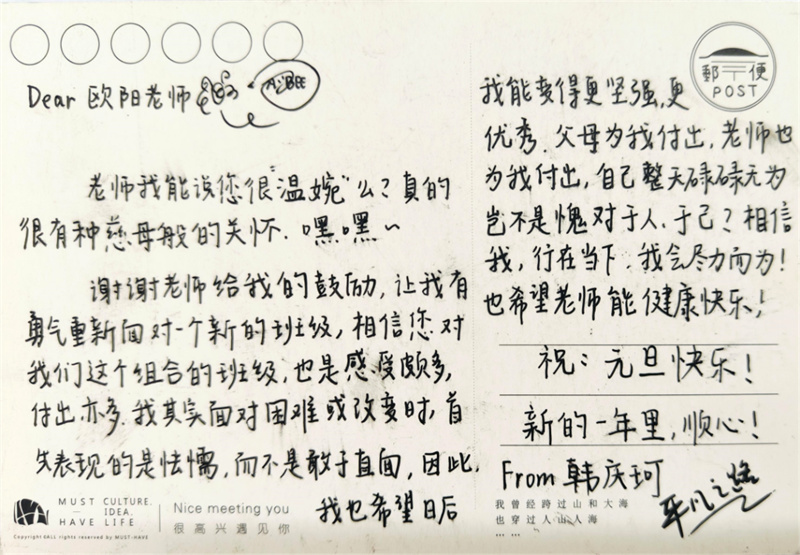 Dear 欧阳老师
A:BEE
老师我能说您很"温婉"么?真的
很有种慈母般的关怀.嘿嘿~
谢谢老师给我的鼓励,让我有
勇气重新面对一个新的班级,相信您对
我们这个组合的班级,也是感受颇多,
付出亦多.我其实面对困难或改变时,首
先表现的是怯懦,而不是敢于直面,因此,
我也希望日后
我能变得更坚强,更
优秀.父母为我付出,老师也
为我付出,自己整天碌碌无为
岂不是愧对于人、于己?相信
我,行在当下.我会尽力而为!
也希望老师能健康快乐!
祝:元旦快乐!
新的一年里,顺心!
From 韩庆珂
平凡之路
郵〒便
POST
MUST CULTURE.
IDEA.
HAVE LIFE
Copyright ©ALL rights reserved by MUST-HAVE
Nice meeting you
很高兴遇见你
我曾经跨过山和大海
也穿过人山人海
... ...